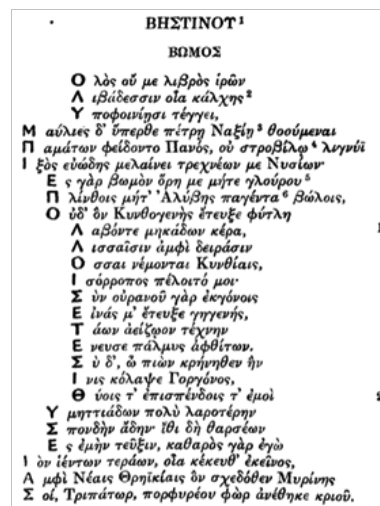 ΒΗΣΤΙΝΟΥ¹
ΒΩΜΟΣ
Ὀ λὸς οὔ με λιβρὸς ἱρῶν
Λ ιβάδεσσιν οἷα κάλχης²
Υ ποφοινίῃσι τέγγει,
Μ αύλιες δ' ὕπερθε πέτρῃ Ναξίῃ³ θοούμεναι
Π αμάτων φείδοντο Πανός, οὐ στροβίλῳ⁴ λιγνυῒ
Ι ξὸς εὐώδης μελαίνει τρεχνέων με Νυσίων·
Ε ς γὰρ βωμὸν ὅρη με μήτε γλούρου⁵
Π λίνθοις μήτ' Ἀλύβης παγέντα⁶ βώλοις,
Ο ὐδ' ὃν Κυνθογενὴς ἔτευξε φύτλη
Λ αβόντε μηκάδων κέρα,
Λ ισσαῖσιν ἀμφὶ δειράσιν
Ο σσαι νέμονται Κυνθίαις,
Ι σόρροπος πέλοιτό μοι·
Σ ὺν οὐρανοῦ γὰρ ἐκγόνοις
Ε ἰνάς μ' ἔτευξε γηγενής,
Τ άων ἀείζωον τέχνην
Ε νευσε πάλμυς ἀφθίτων.
Σ ὺ δ', ὦ πιὼν κρήνηθεν ἣν
Ι νις κόλαψε Γοργόνος,
Θ ύοις τ' ἐπισπένδοις τ' ἐμοὶ
Υ μηττιάδων πολὺ λαροτέρην
Σ πονδὴν ἄδην· ἴθι δὴ θαρσέων
Ε ς ἐμὴν τεῦξιν, καθαρὸς γὰρ ἐγὼ
Ι ὸν ἱέντων τεράων, οἷα κέκευθ' ἐκεῖνος,
Α μφὶ Νέαις Θρηϊκίαις ὃν σχεδόθεν Μυρίνης
Σ οί, Τριπάτωρ, πορφυρέου φὼρ ἀνέθηκε κριοῦ.